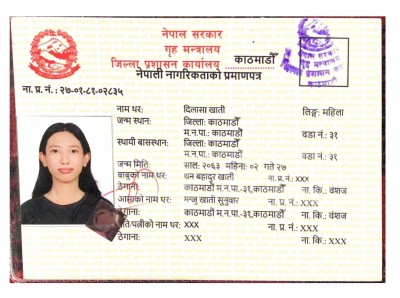 नेपाल सरकार
गृह मन्त्रालय
जिल्ला प्रशासन कार्यालय, काठमाडौँ
नेपाली नागरिकताको प्रमाणपत्र
ना. प्र. नं. : २७-०१-८१-०२८३५
नाम थर: दिलासा खाती लिङ्ग: महिला
जन्म स्थान: जिल्ला: काठमाडौँ
म.न.पा.: काठमाडौँ वडा नं.: ३१
स्थायी बासस्थान: जिल्ला: काठमाडौँ
म.न.पा.: काठमाडौँ वडा नं.: ३१
जन्म मिति: साल: २०६३ महिना: ०२ गते २७
बाबुको नाम थर: धन बहादुर खाती ना. प्र. नं.: XXX
ठेगाना: काठमाडौँ म.न.पा.-३१,काठमाडौँ ना. कि.: वंशज
आमाको नाम थर: मन्जु खाती सुनुवार ना. प्र. नं.: XXX
ठेगाना: काठमाडौँ म.न.पा.-३१,काठमाडौँ ना. कि.: वंशज
पति/पत्नीको नाम थर: XXX ना. प्र. नं.: XXX
ठेगाना: XXX ना. कि.: XXX